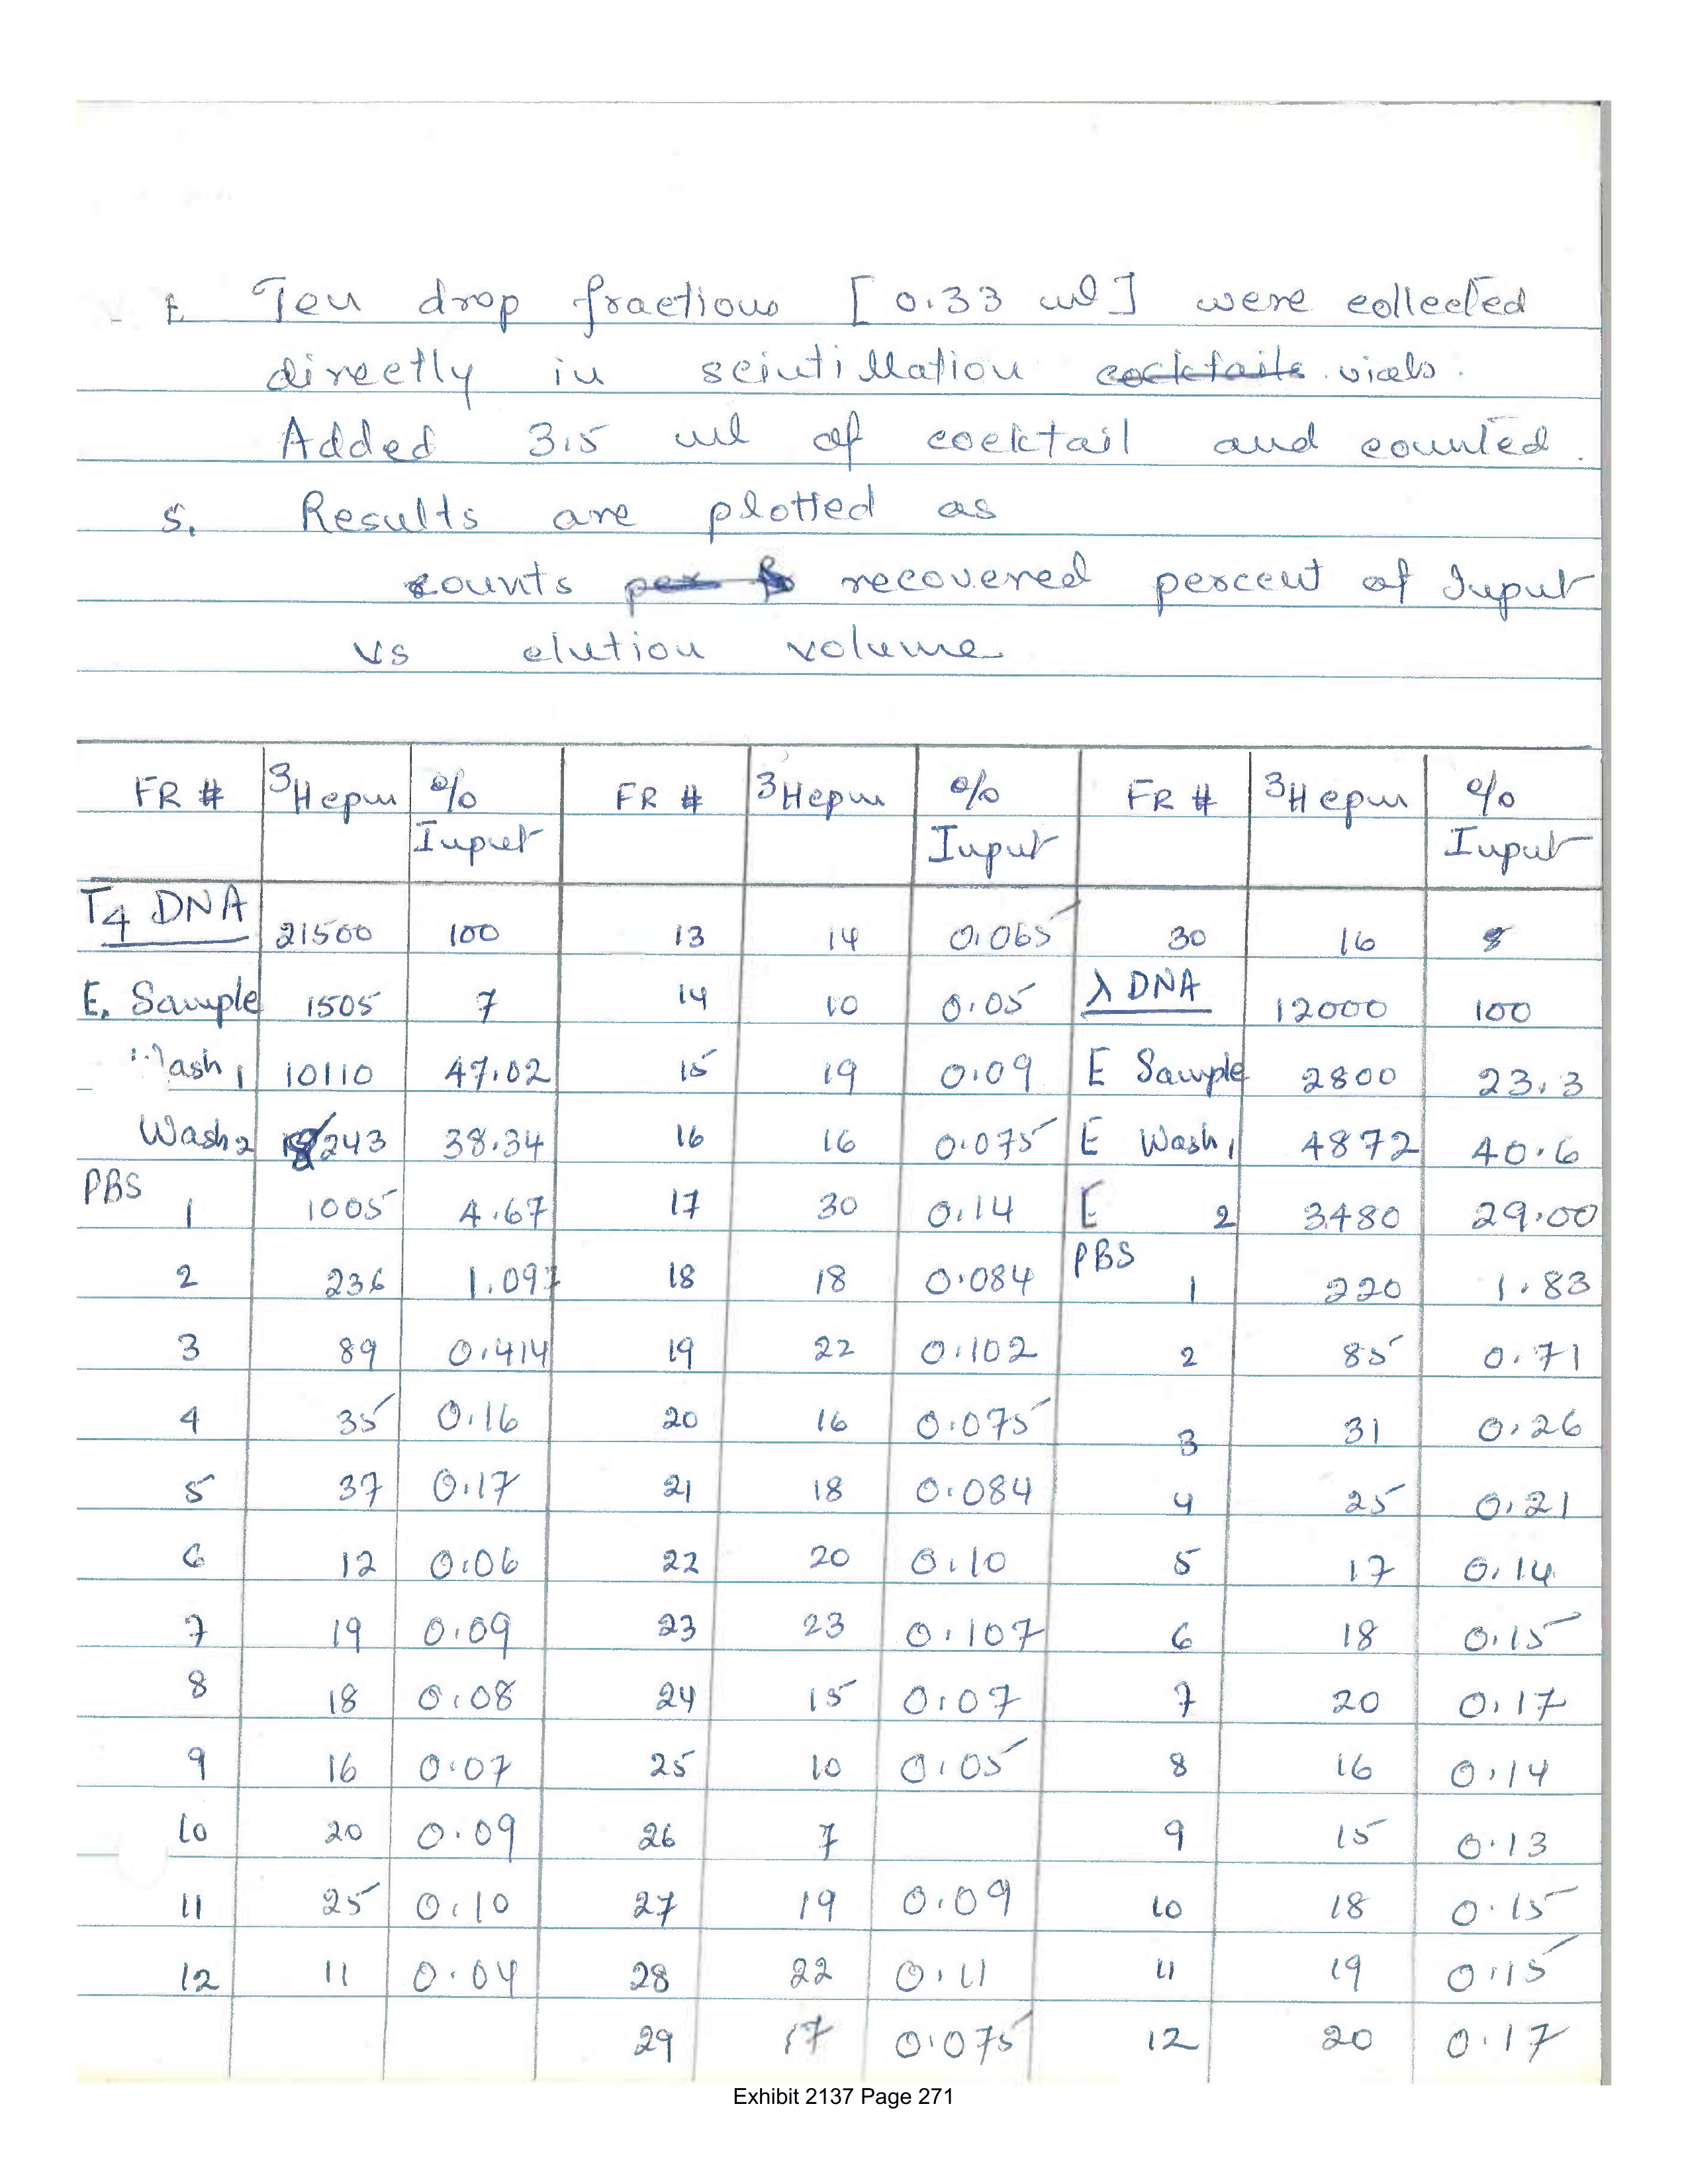 E. Ten drop fractions [0.33 ml] were collected
directly in scintillation cocktails vials.
Added 3.5 ml of cocktail and counted.
5. Results are plotted as
counts per recovered percent of Input
vs elution volume
FR # ³Hcpm % Input FR # ³Hcpm % Input FR # ³Hcpm % Input
T4 DNA 21500 100 13 14 0.065 30 16
E. Sample 1505 7 14 10 0.05 λ DNA 12000 100
Wash 1 10110 47.02 15 19 0.09 E Sample 2800 23.3
Wash 2 8243 38.34 16 16 0.075 E Wash 1 4872 40.6
PBS 1 1005 4.67 17 30 0.14 E 2 3480 29.00
2 236 1.097 18 18 0.084 PBS 1 220 1.83
3 89 0.414 19 22 0.102 2 85 0.71
4 35 0.16 20 16 0.075 3 31 0.26
5 37 0.17 21 18 0.084 4 25 0.21
6 12 0.06 22 20 0.10 5 17 0.14
7 19 0.09 23 23 0.107 6 18 0.15
8 18 0.08 24 15 0.07 7 20 0.17
9 16 0.07 25 10 0.05 8 16 0.14
10 20 0.09 26 7 9 15 0.13
11 25 0.10 27 19 0.09 10 18 0.15
12 11 0.04 28 22 0.11 11 19 0.15
29 17 0.075 12 20 0.17
Exhibit 2137 Page 271